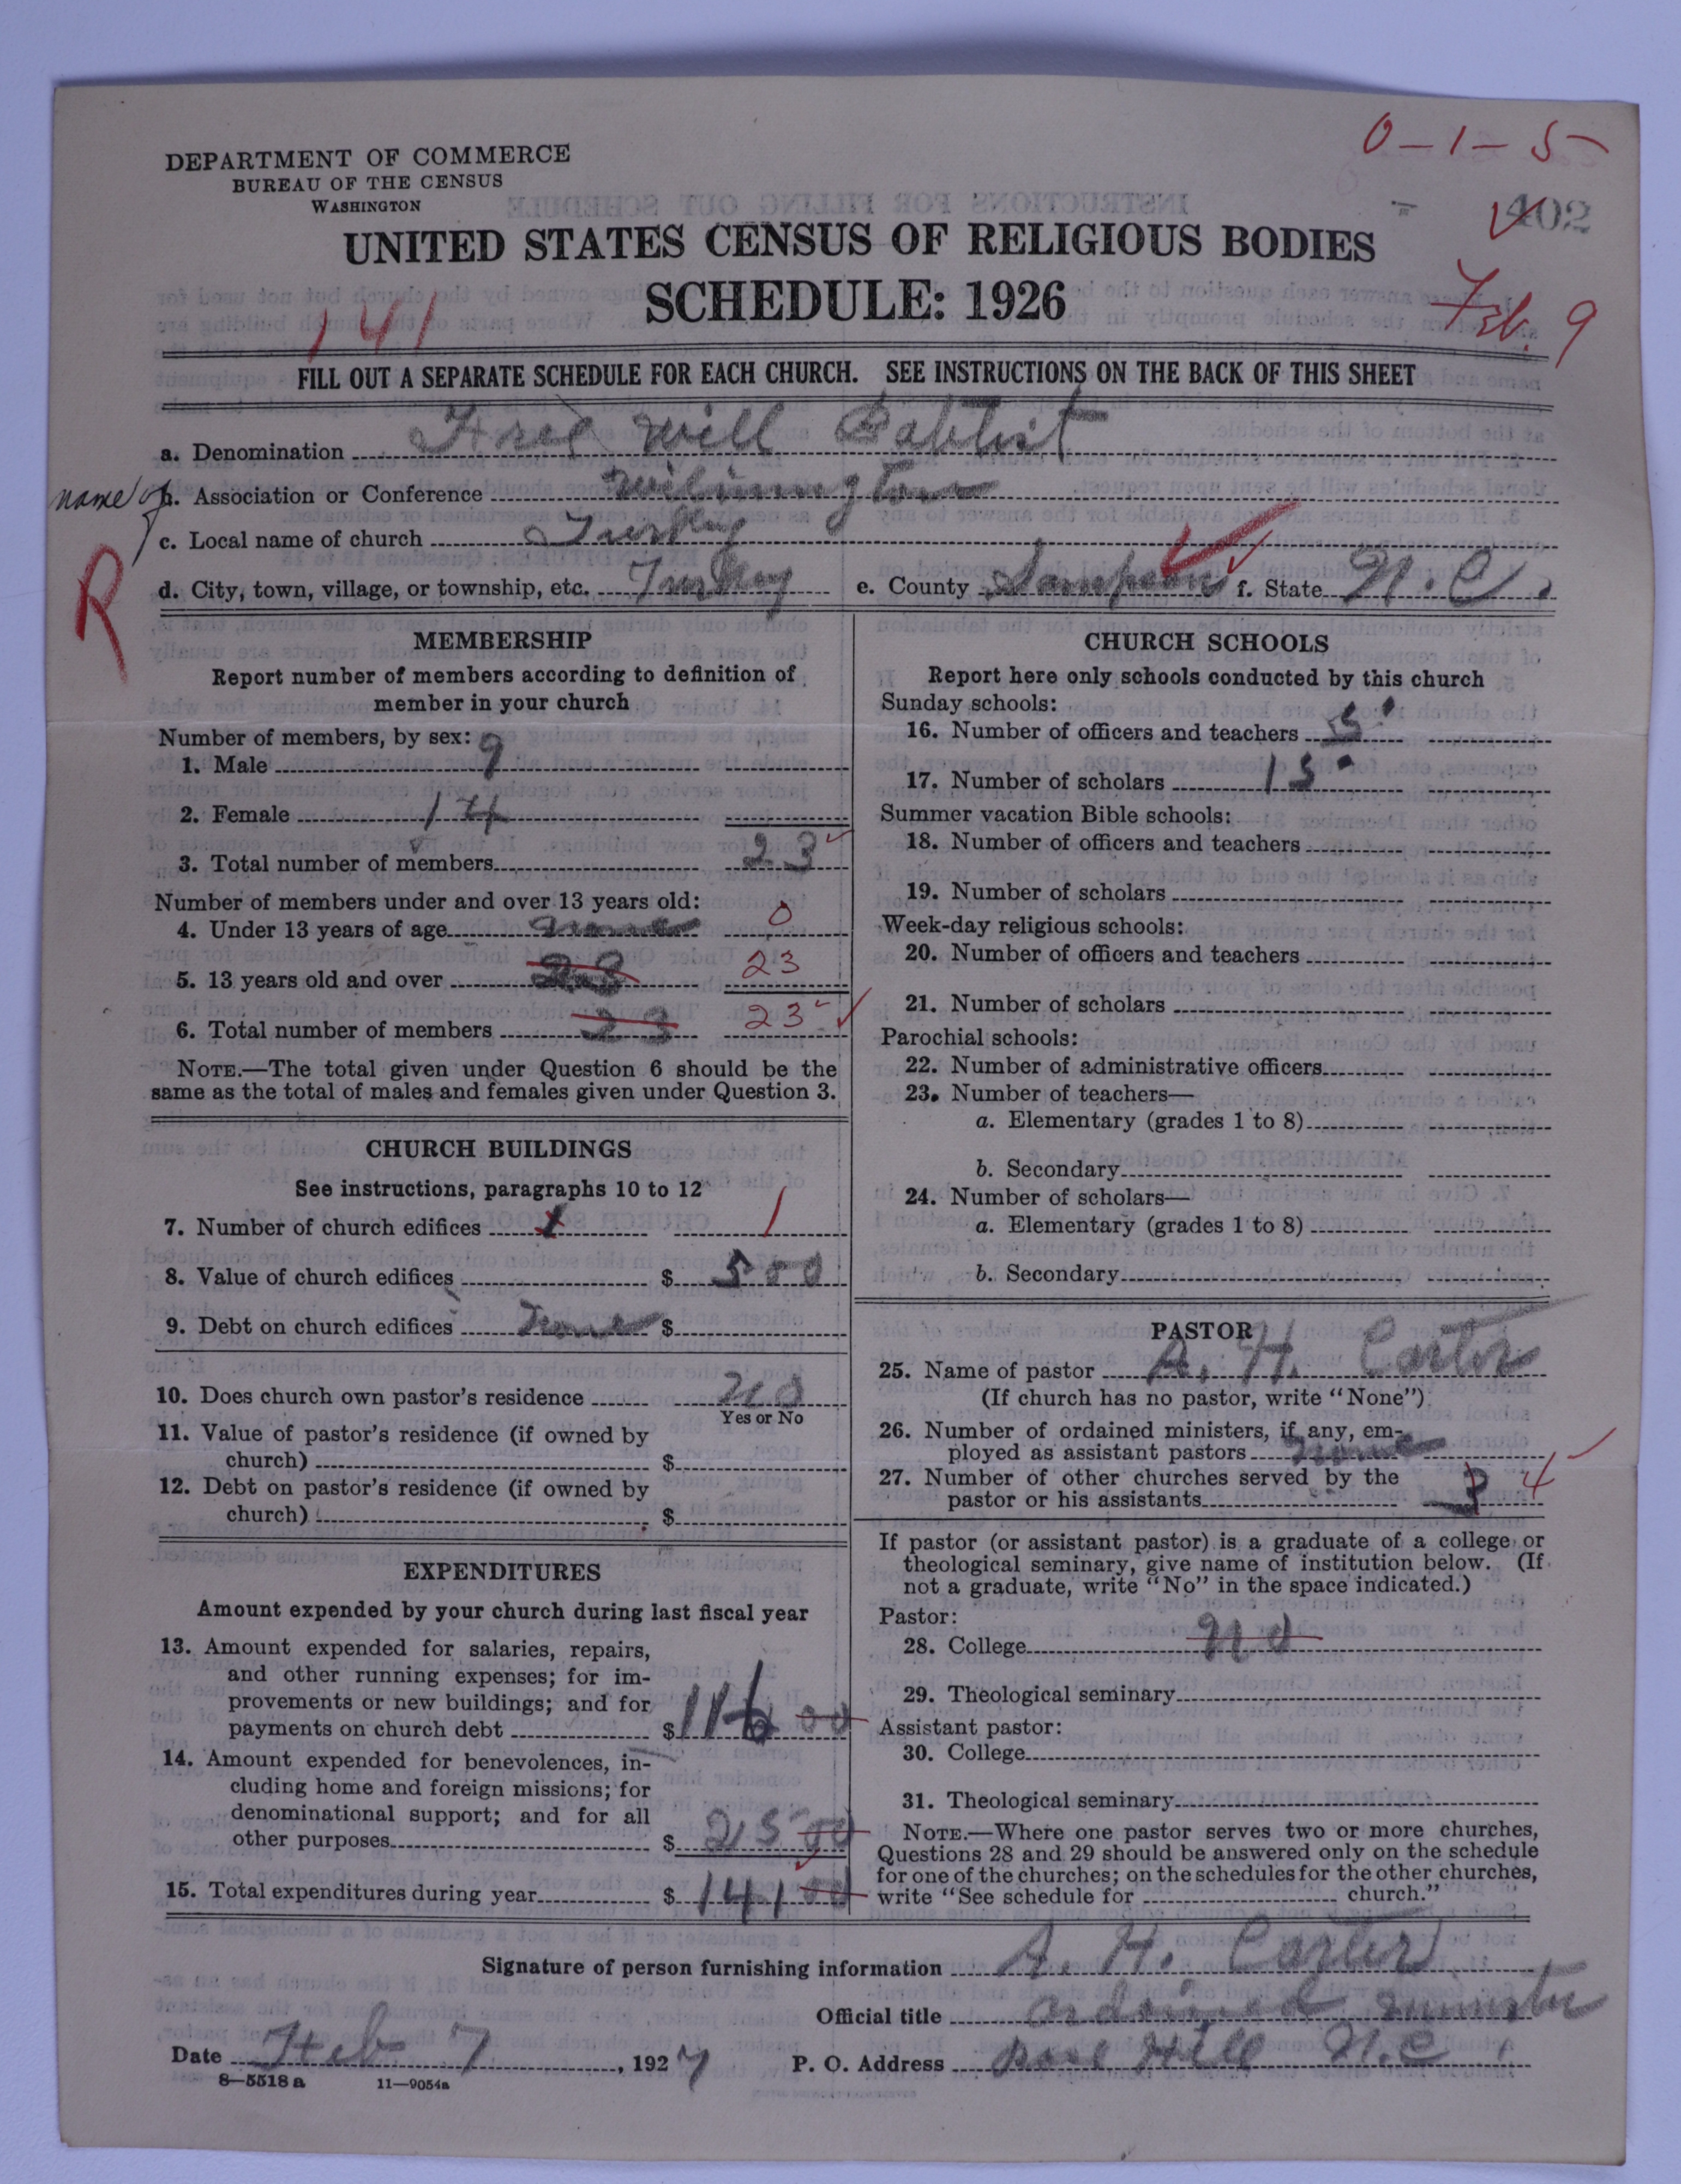 0-1-5
DEPARTMENT OF COMMERCE
BUREAU OF THE CENSUS
WASHINGTON
402
UNITED STATES CENSUS OF RELIGIOUS BODIES
SCHEDULE: 1926
141
Feb. 9
FILL OUT A SEPARATE SCHEDULE FOR EACH CHURCH. SEE INSTRUCTIONS ON THE BACK OF THIS SHEET
a. Denomination Free Will Babtist
name of b. Association or Conference Wilmington
c. Local name of church Turkey
R
d. City, town, village, or township, etc. Turkey e. County Sampson f. State N.C.
MEMBERSHIP
Report number of members according to definition of
member in your church
Number of members, by sex:
1. Male 9
2. Female 14
3. Total number of members 23
Number of members under and over 13 years old:
4. Under 13 years of age none 0
5. 13 years old and over 23 23
6. Total number of members 23 23
NOTE.—The total given under Question 6 should be the
same as the total of males and females given under Question 3.
CHURCH BUILDINGS
See instructions, paragraphs 10 to 12
7. Number of church edifices 1 1
8. Value of church edifices $ 500
9. Debt on church edifices None $
10. Does church own pastor's residence no
Yes or No
11. Value of pastor's residence (if owned by
church) $
12. Debt on pastor's residence (if owned by
church) $
EXPENDITURES
Amount expended by your church during last fiscal year
13. Amount expended for salaries, repairs,
and other running expenses; for im-
provements or new buildings; and for
payments on church debt $ 116 00
14. Amount expended for benevolences, in-
cluding home and foreign missions; for
denominational support; and for all
other purposes $ 25 00
15. Total expenditures during year $ 141 00
CHURCH SCHOOLS
Report here only schools conducted by this church
Sunday schools:
16. Number of officers and teachers 5
17. Number of scholars 15
Summer vacation Bible schools:
18. Number of officers and teachers
19. Number of scholars
Week-day religious schools:
20. Number of officers and teachers
21. Number of scholars
Parochial schools:
22. Number of administrative officers
23. Number of teachers—
a. Elementary (grades 1 to 8)
b. Secondary
24. Number of scholars—
a. Elementary (grades 1 to 8)
b. Secondary
PASTOR
25. Name of pastor A. H. Carter
(If church has no pastor, write "None")
26. Number of ordained ministers, if any, em-
ployed as assistant pastors none
27. Number of other churches served by the
pastor or his assistants 3 4
If pastor (or assistant pastor) is a graduate of a college or
theological seminary, give name of institution below. (If
not a graduate, write "No" in the space indicated.)
Pastor:
28. College no
29. Theological seminary
Assistant pastor:
30. College
31. Theological seminary
NOTE.—Where one pastor serves two or more churches,
Questions 28 and 29 should be answered only on the schedule
for one of the churches; on the schedules for the other churches,
write "See schedule for church."
Signature of person furnishing information A. H. Carter
Official title ordained minister
Date Feb 7, 1927 P. O. Address Rose Hill N.C.
8—5518 a 11—9054a